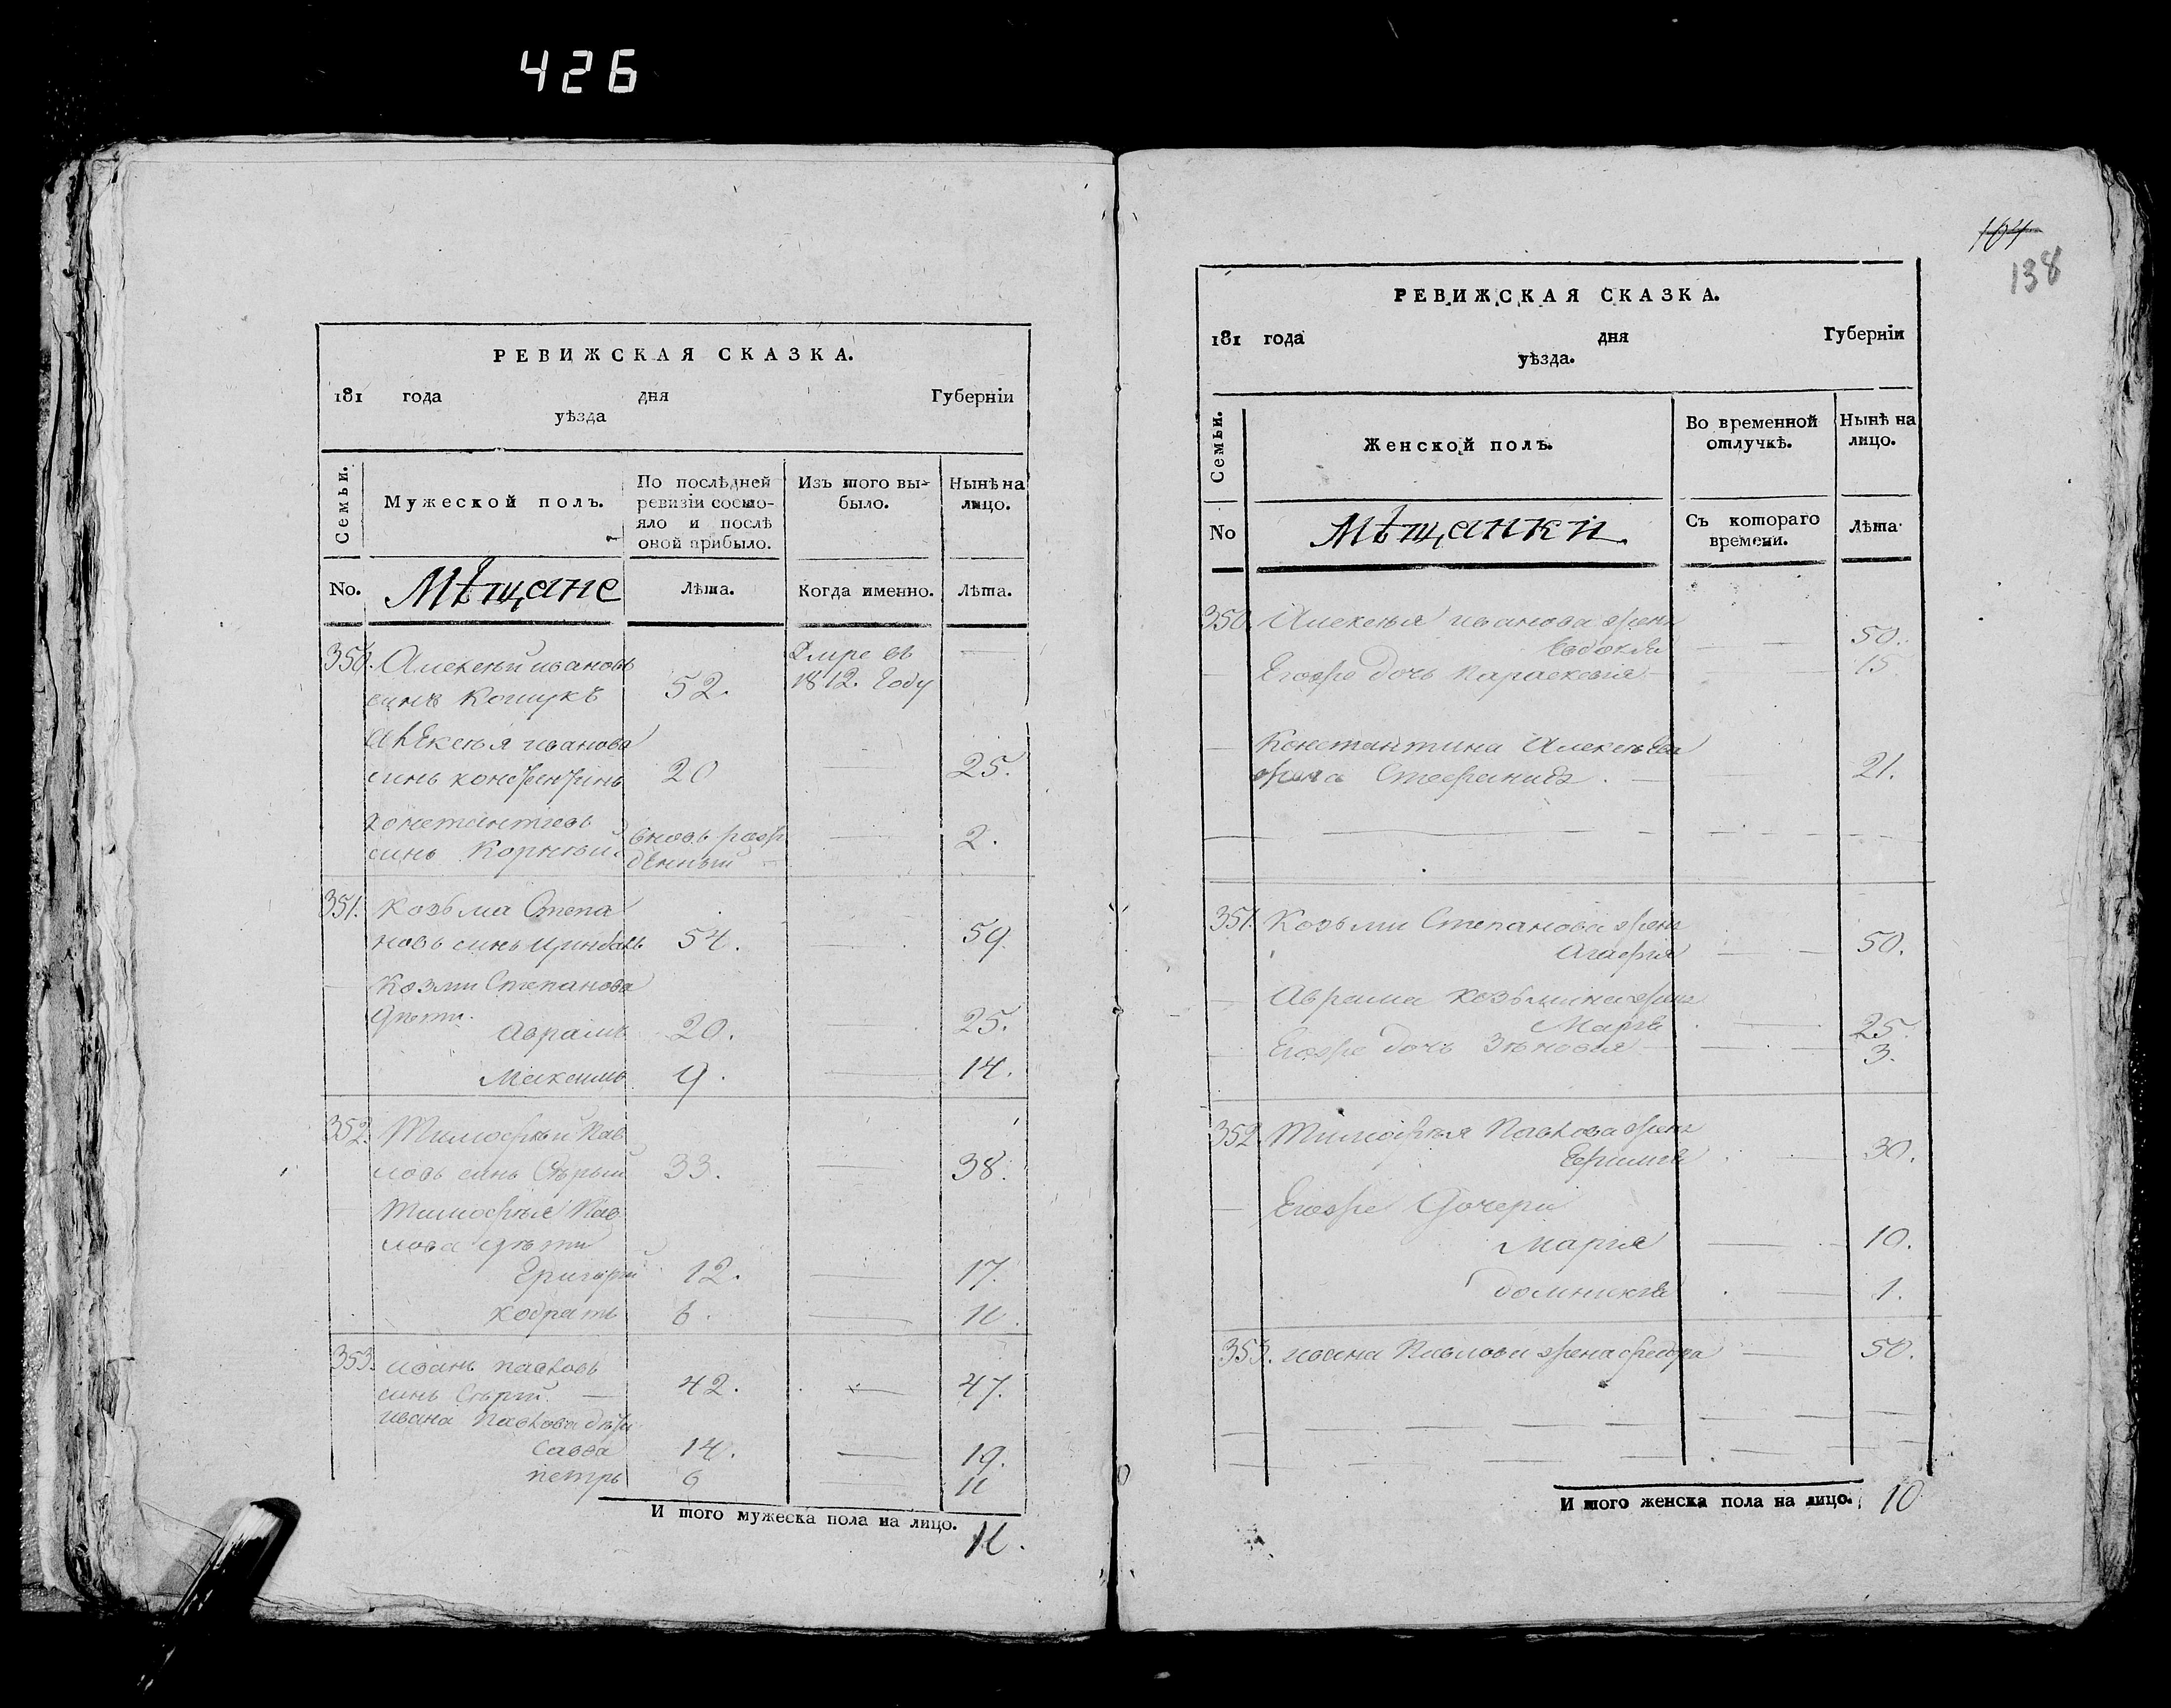 426
РЕВИЖСКАЯ СКАЗКА.
181 года дня Губерніи
уѣзда
Семьи.
Мужеской полъ.
По послѣдней
ревизіи состо-
яло и послѣ
оной прибыло.
Изъ того вы-
было.
Нынѣ на
лицо.
No.
Мѣщане
Лѣта.
Когда именно.
Лѣта.
350. Алексѣй ивановъ
синъ Кошукъ 52. Умре въ
1812. Году
алексѣя иванова
синъ константинъ 20 25.
константиевъ
синъ Корнѣй вновь рож
денный 2.
351. козьма Степа
новъ синъ 54. 59.
Козми Степанова
дѣти
Аврамъ 20. 25.
Максимъ 9. 14.
352. Тимофѣй Пав
ловъ синъ Сѣрый 33. 38.
Тимофѣя Пав
лова дѣти
Григорій 12. 17.
кодратъ 6. 11.
353. иванъ павловъ
синъ Сѣрій 42. 47.
ивана Павлова дѣти
Савва 14. 19.
петръ 6 11
И того мужеска пола на лицо. 11.
104
138
РЕВИЖСКАЯ СКАЗКА.
181 года дня Губерніи
уѣзда.
Семьи.
Женской полъ.
Во временной
отлучкѣ.
Нынѣ на
лицо.
No
Мѣщанки.
Съ котораго
времени.
Лѣта
350. Алексѣя иванова жена
Евдокія 50.
Егоже дочь параскевія 15.
Константина Алексѣева
жена Стефанида 21.
351. Козьми Степанова жена
Агафія 50.
Аврама козьмина жена
Марія 25.
Егоже дочь Зѣновія 3.
352. Тимофѣя Павлова жена
Ефимія 30.
Егоже Дочери
Марія 10.
домникія 1.
353. ивана Павлова жена федора 50.
И того женска пола на лицо. 10